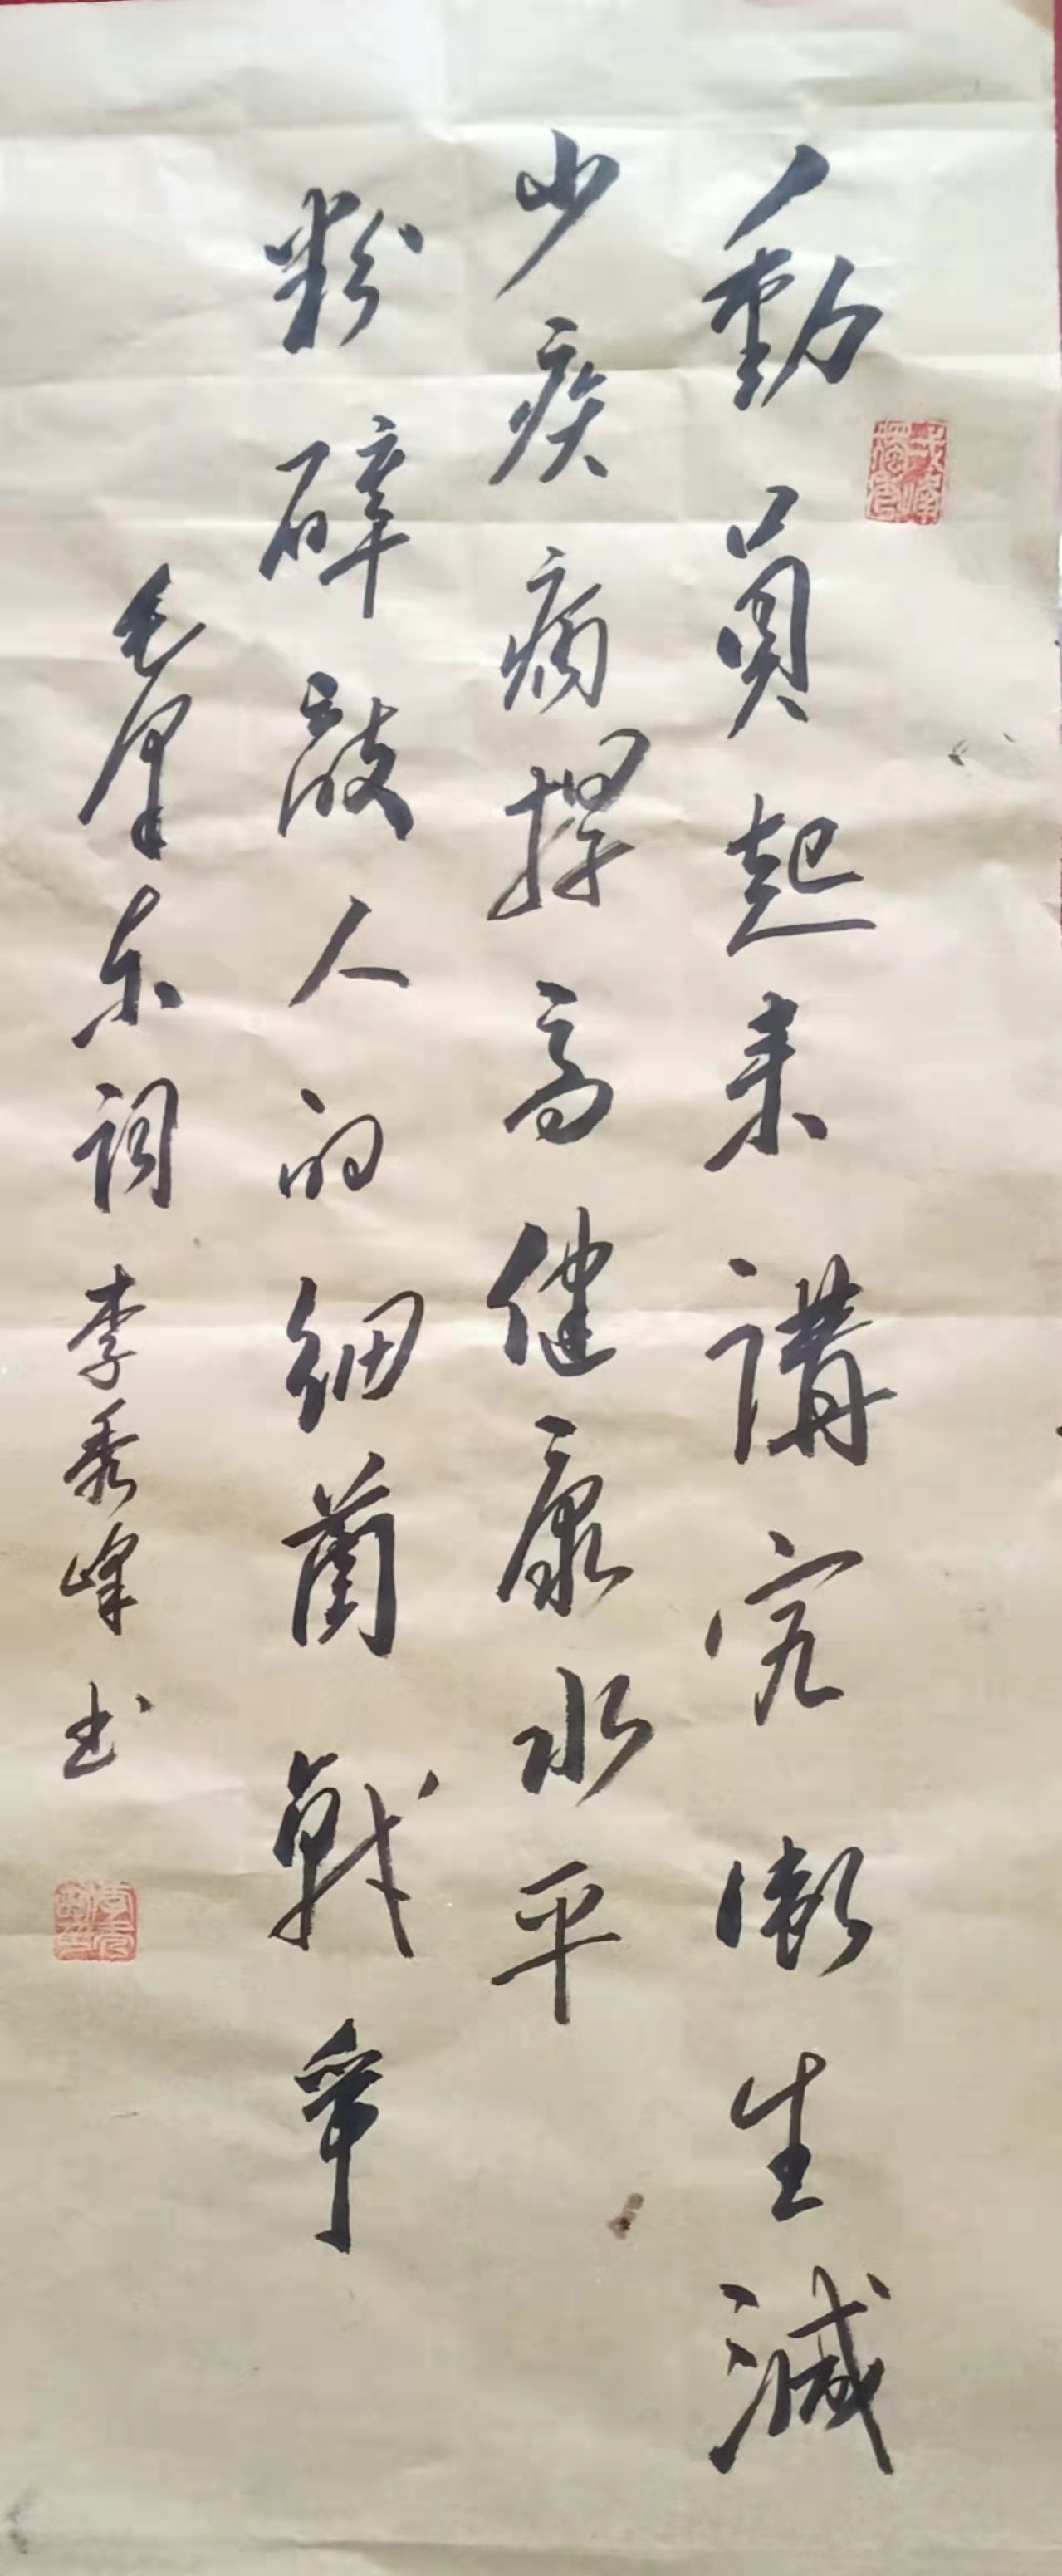 動員起来講究衛生減
少疾病提高健康水平
粉碎敵人的細菌戰爭
毛澤东詞 李秀峰书